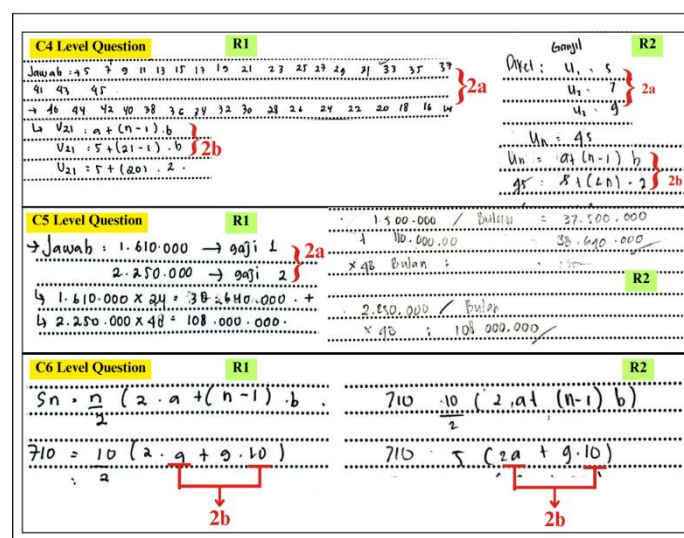 C4 Level Question R1
Jawab : → 5 7 9 11 13 15 17 19 21 23 25 27 29 31 33 35 37
41 43 45
2a
→ 46 44 42 40 38 36 34 32 30 28 26 24 22 20 18 16 14
↳ U21 : a + (n-1) . b
U21 : 5 + (21-1) . b
2b
U21 : 5 + (20) . 2 .
R2
Ganjil
Diket : U1 . 5
U2 . 7
2a
U3 . 9
Un = 45
Un = a + (n-1) b
2b
45 :
C5 Level Question R1
→ Jawab : 1.610.000 → gaji 1
2a
2.250.000 → gaji 2
↳ 1.610.000 x 24 = 38.640.000 . +
↳ 2.250.000 x 48 = 108.000.000.
1.500.000 / Bulan = 37.500.000
+ 110.000.00 = 38.640.000
x 48 Bulan :
R2
2.250.000 / Bulan
x 48 : 108 000.000
C6 Level Question R1
Sn = n/2 (2 . a + (n-1) . b .
710 = 10/2 (2 . a + 9 . 10)
2b
R2
710 10/2 (2.a+ (n-1) b)
710 . 5 (2a + 9.10)
2b